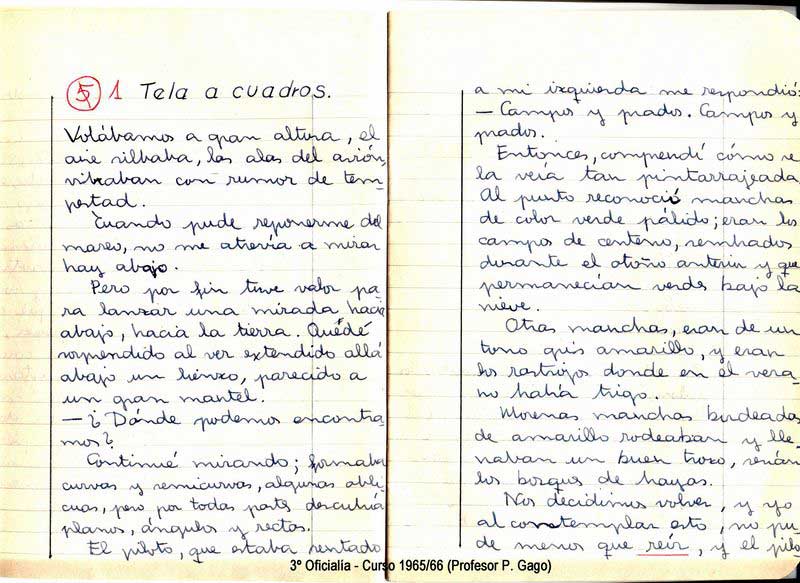 5 1 Tela a cuadros.
Volábamos a gran altura, el
aire silbaba, las alas del avión,
vibraban con rumor de tem-
pestad.
Cuando pude reponerme del
mareo, no me atrevía a mirar
hay abajo.
Pero por fin tuve valor pa-
ra lanzar una mirada hacia
abajo, hacia la tierra. Quédé
sorprendido al ver extendido allá
abajo un lienzo, parecido a
un gran mantel.
— ¿Dónde podemos encontra-
mos?
Continué mirando; formaba
curvas y semicurvas, algunas obli-
cuas, pero por todas parts descubría
planos, ángulos y rectas.
El piloto, que estaba sentado
a mi izquierda me respondió:
— Campos y prados. Campos y
prados.
Entonces, comprendí cómo se
la veía tan pintarrajeada
Al punto reconoció manchas
de color verde pálido; eran los
campos de centeno, sembrados
durante el otoño anterior y que
permanecían verdes bajo la
nieve.
Otras manchas, eran de un
tono gris amarillo, y eran
los rastrojos donde en el vera-
no había trigo.
Morenas manchas bordeadas
de amarillo rodeaban y lle-
naban un buen trozo, serían
los bosques de hayas.
Nos decidimos volver, y yo
al contemplar esto, no pu-
de menos que reír, y el pilo
3º Oficialía - Curso 1965/66 (Profesor P. Gago)